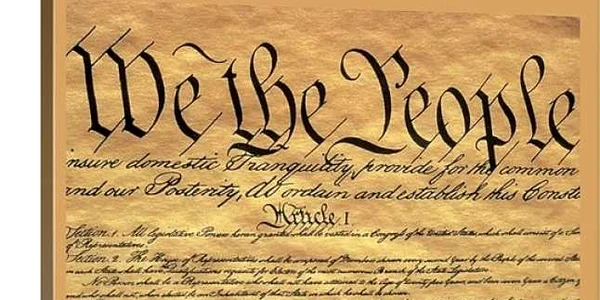 We the People
insure domestic Tranquility, provide for the common
and our Posterity, do ordain and establish this Const
Article I.
Section. 1. All legislative Powers herein granted shall be vested in a Congress of the United States which shall consist of a Sen
of Representatives.
Section. 2. The House of Representatives shall be composed of Members chosen every second Year by the People of the several
in each State shall have Qualifications requisite for Electors of the most numerous Branch of the State Legislature.
No Person shall be a Representative who shall not have attained to the Age of twenty five Years, and been seven Years a Citizen
and who shall not, when elected, be an Inhabitant of that State in which he shall be chosen.